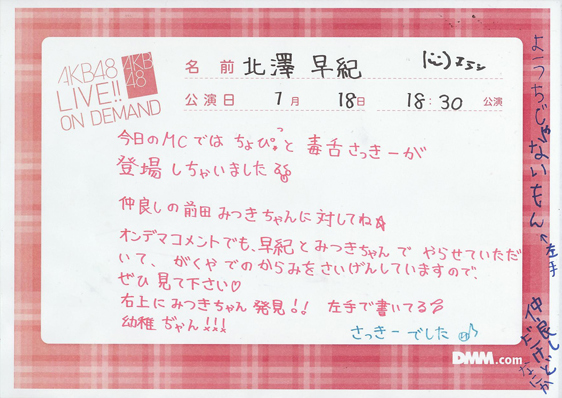 AKB48
LIVE!!
ON DEMAND
AKB
48
名前 北澤 早紀
公演日 1月 18日 18:30 公演
今日のMCでは ちょぴっと 毒舌さっきーが
登場しちゃいました
仲良しの前田 みつきちゃんに対してね☆
オンデマコメントでも、早紀とみつきちゃんで やらせていただ
いて、がくやでのからみをさいげんしていますので、
ぜひ 見て下さい♡
右上にみつきちゃん 発見!! 左手で書いてる
幼稚ぢゃん!!!
さっきーでした
DMM.com
ようちじゃないもん
←左手
仲良し